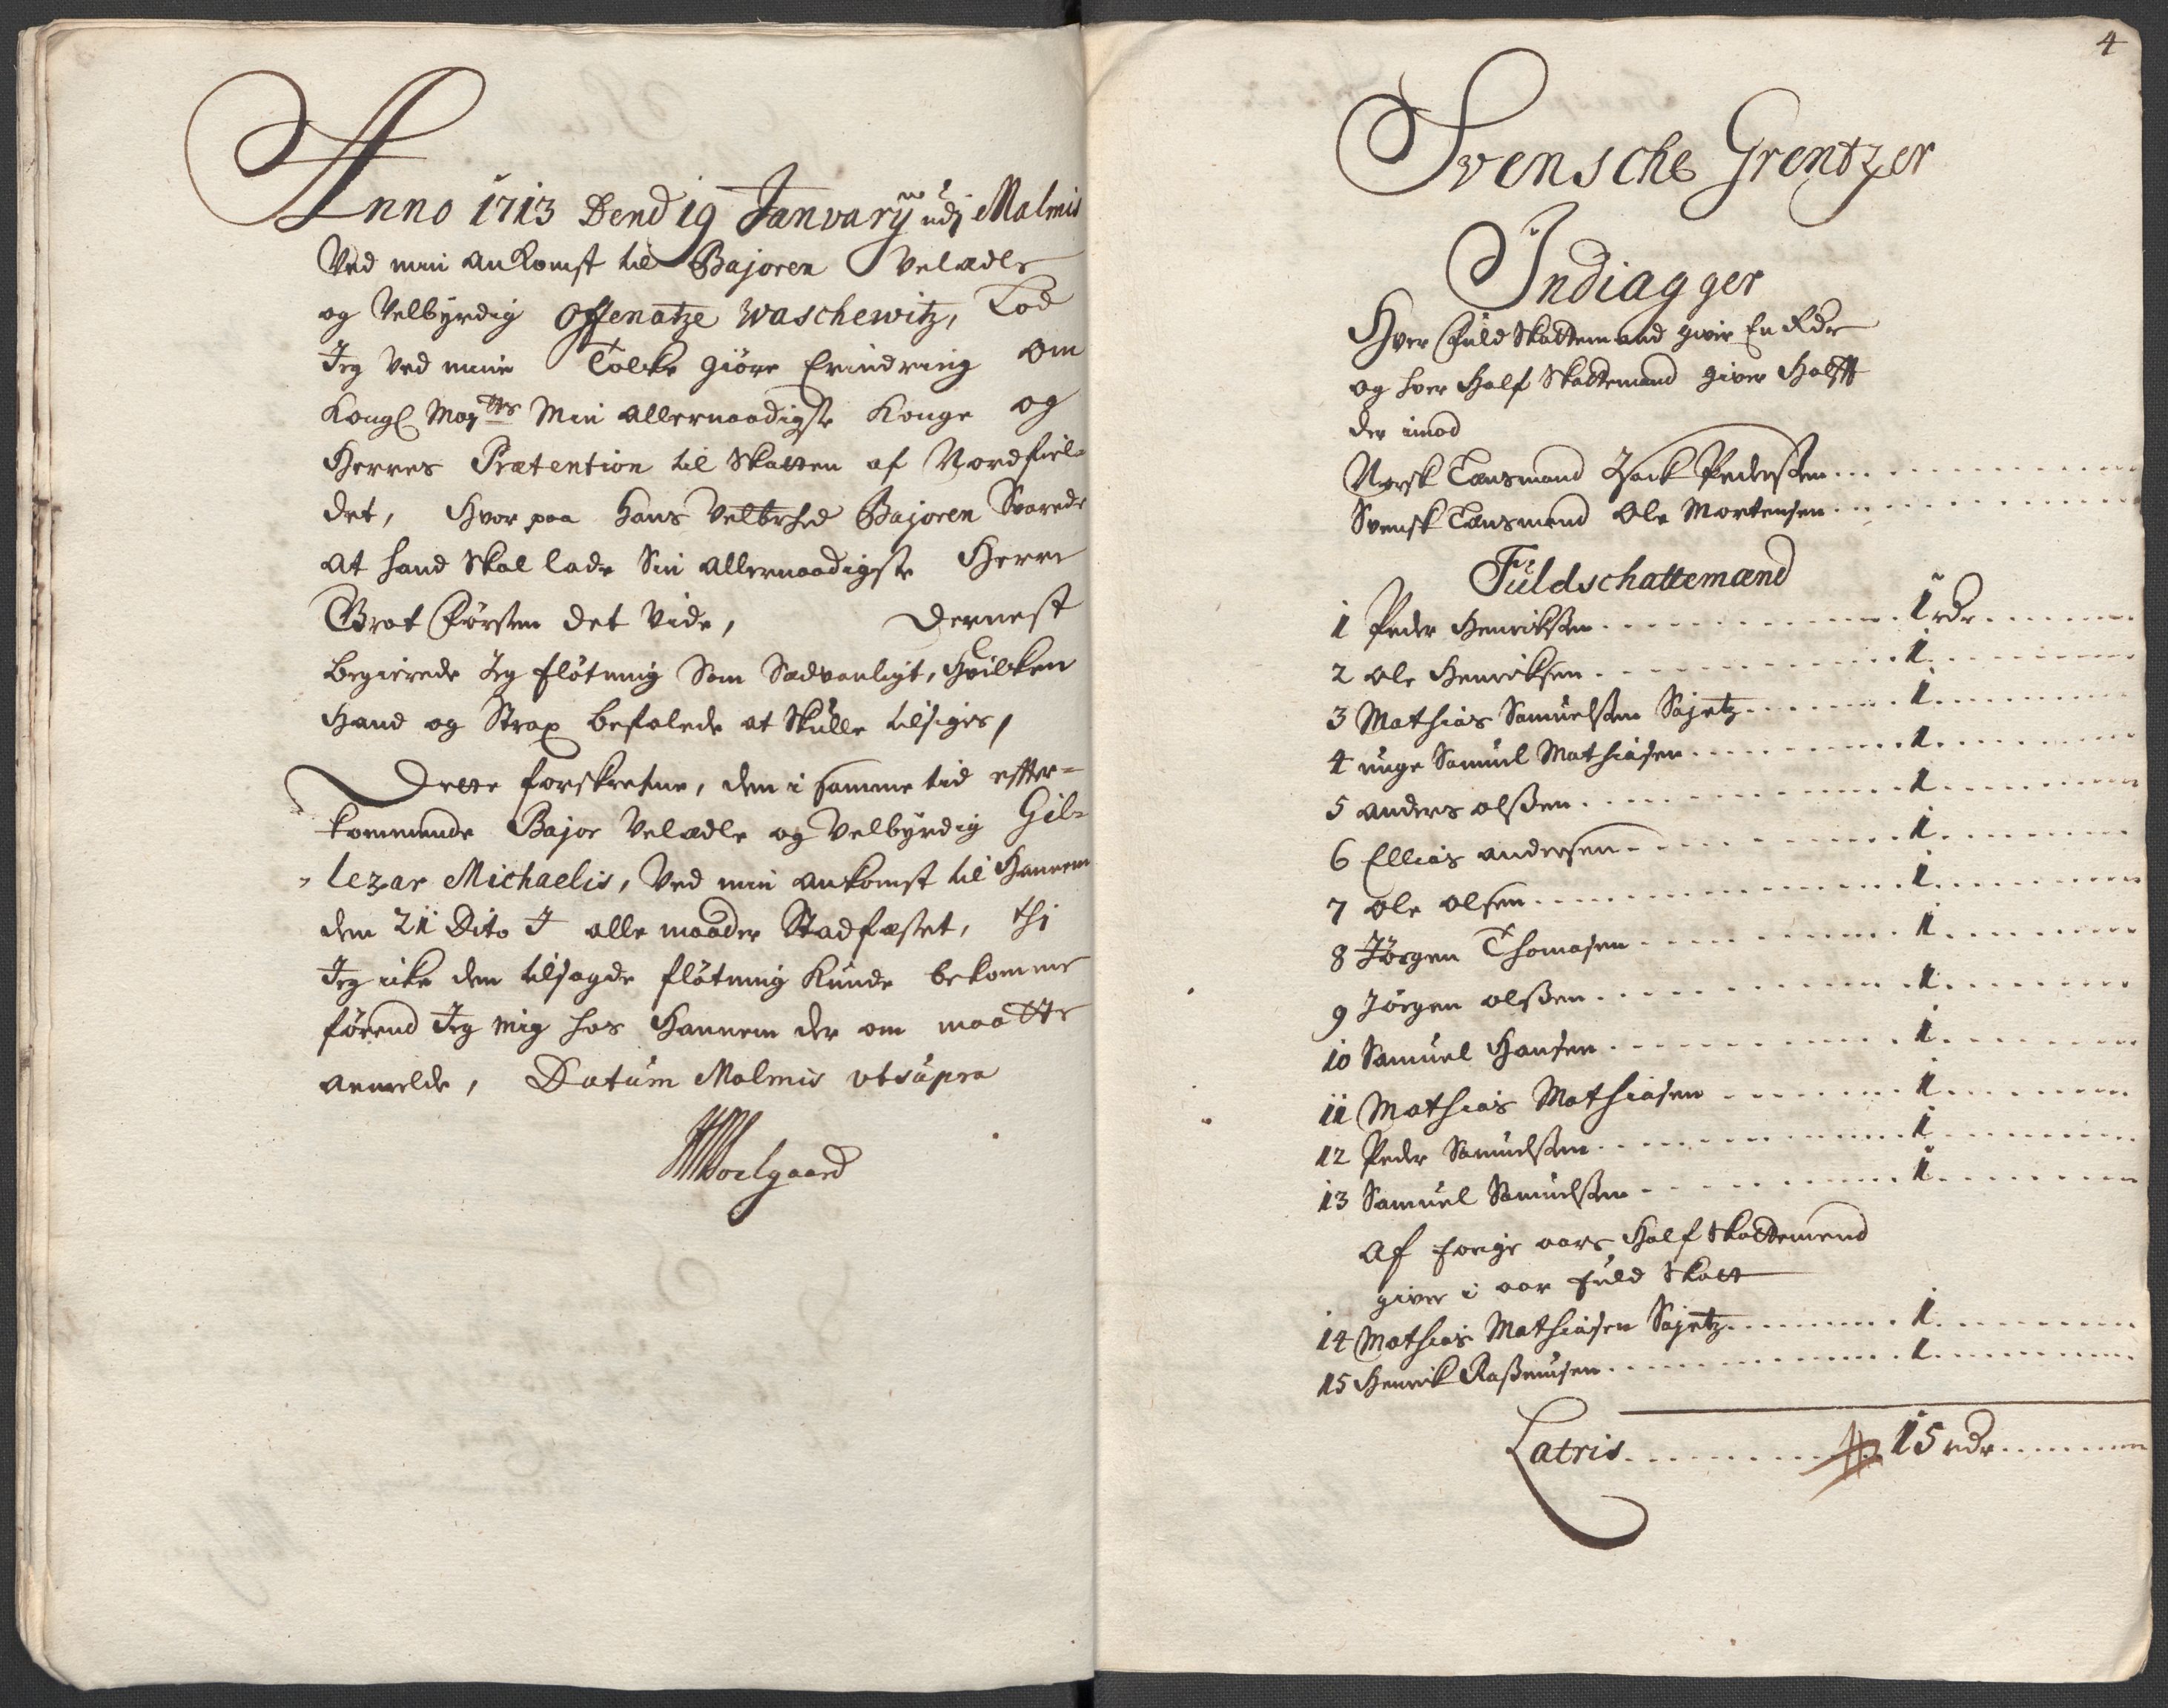 Anno 1713 Dend 19 Januarÿ udj Malmis
Ved min ankomst til Bajoren Velædle
og Velbyrdig Offenatze Waschewitz, Lod
Jeg ved min Tolcke giöre Erindring om
Kongl May:tts Min allernaadigste Konge og
Herres Prætention til Skatten af Nordfiel-
det, Hvor paa hans Velbrhed Bajoren Svarede
at hand skal lade Sin allernaadigste Herre
Grot Försten det vide, Dernest
begierede Jeg flötning Som Sædvanligt, Hvilken
Hand og Strax befalede at Skulle tilsiges,
Dette forskrefne, den i samme tid effter-
kommende Bajor Velædle og Velbyrdig Gil-
lezar Michaelis, Ved min ankomst til Hannem
den 21 Dito J alle maader Stadfæstet, thi
Jeg icke den tilsagde flötning Kunde bekomme
förend Jeg mig hos Hannem der om maatte
anmelde, Datum Malmis vtsupra
Soelgaard
4
Svensche Grentzer
Indiagger
Hver Fuld Skattemand giver En Rdr
og hver Half Skattemand giver Halfft
der imod
Norsk Lensmand Isack Pedersen
Svensk Lensmend Ole Mortensen
Fuldschattemænd
1 Peder Henriksen 1 rdr
2 Ole Henriksen 1
3 Mathias Samuelsen Sajetz 1
4 unge Samuel Mathiasen 1
5 anders olßen 1
6 Ellias andersen 1
7 Ole Olsen 1
8 Jörgen Thomasen 1
9 Jörgen olßen 1
10 Samuel Hansen 1
11 Mathias Mathiasen 1
12 Peder Samuelsen 1
13 Samuel Samuelsen 1
Af forige aars Half Skattemend
giver i aar fuld Skatt
14 Mathias Mathiasen Sajetz 1
15 Henrik Raßmusen 1
Latris 15 rdr